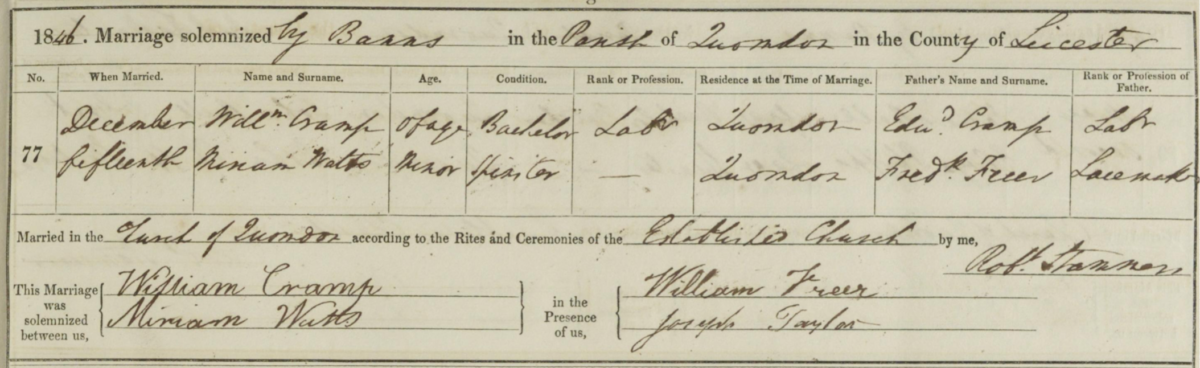 1846. Marriage solemnized by Banns in the Parish of Quorndon in the County of Leicester
No. When Married. Name and Surname. Age. Condition. Rank or Profession. Residence at the Time of Marriage. Father's Name and Surname. Rank or Profession of Father.
77
December Willm Cramp of age Bachelor Labr Quorndon Edwd Cramp Labr
fifteenth Miriam Watts Minor Spinster — Quorndon Fredk Freer Lacemaker
Married in the Church of Quorndon according to the Rites and Ceremonies of the Established Church by me,
Robt Stammers
This Marriage was solemnized between us, William Cramp
Miriam Watts
in the Presence of us, William Freer
Joseph Taylor